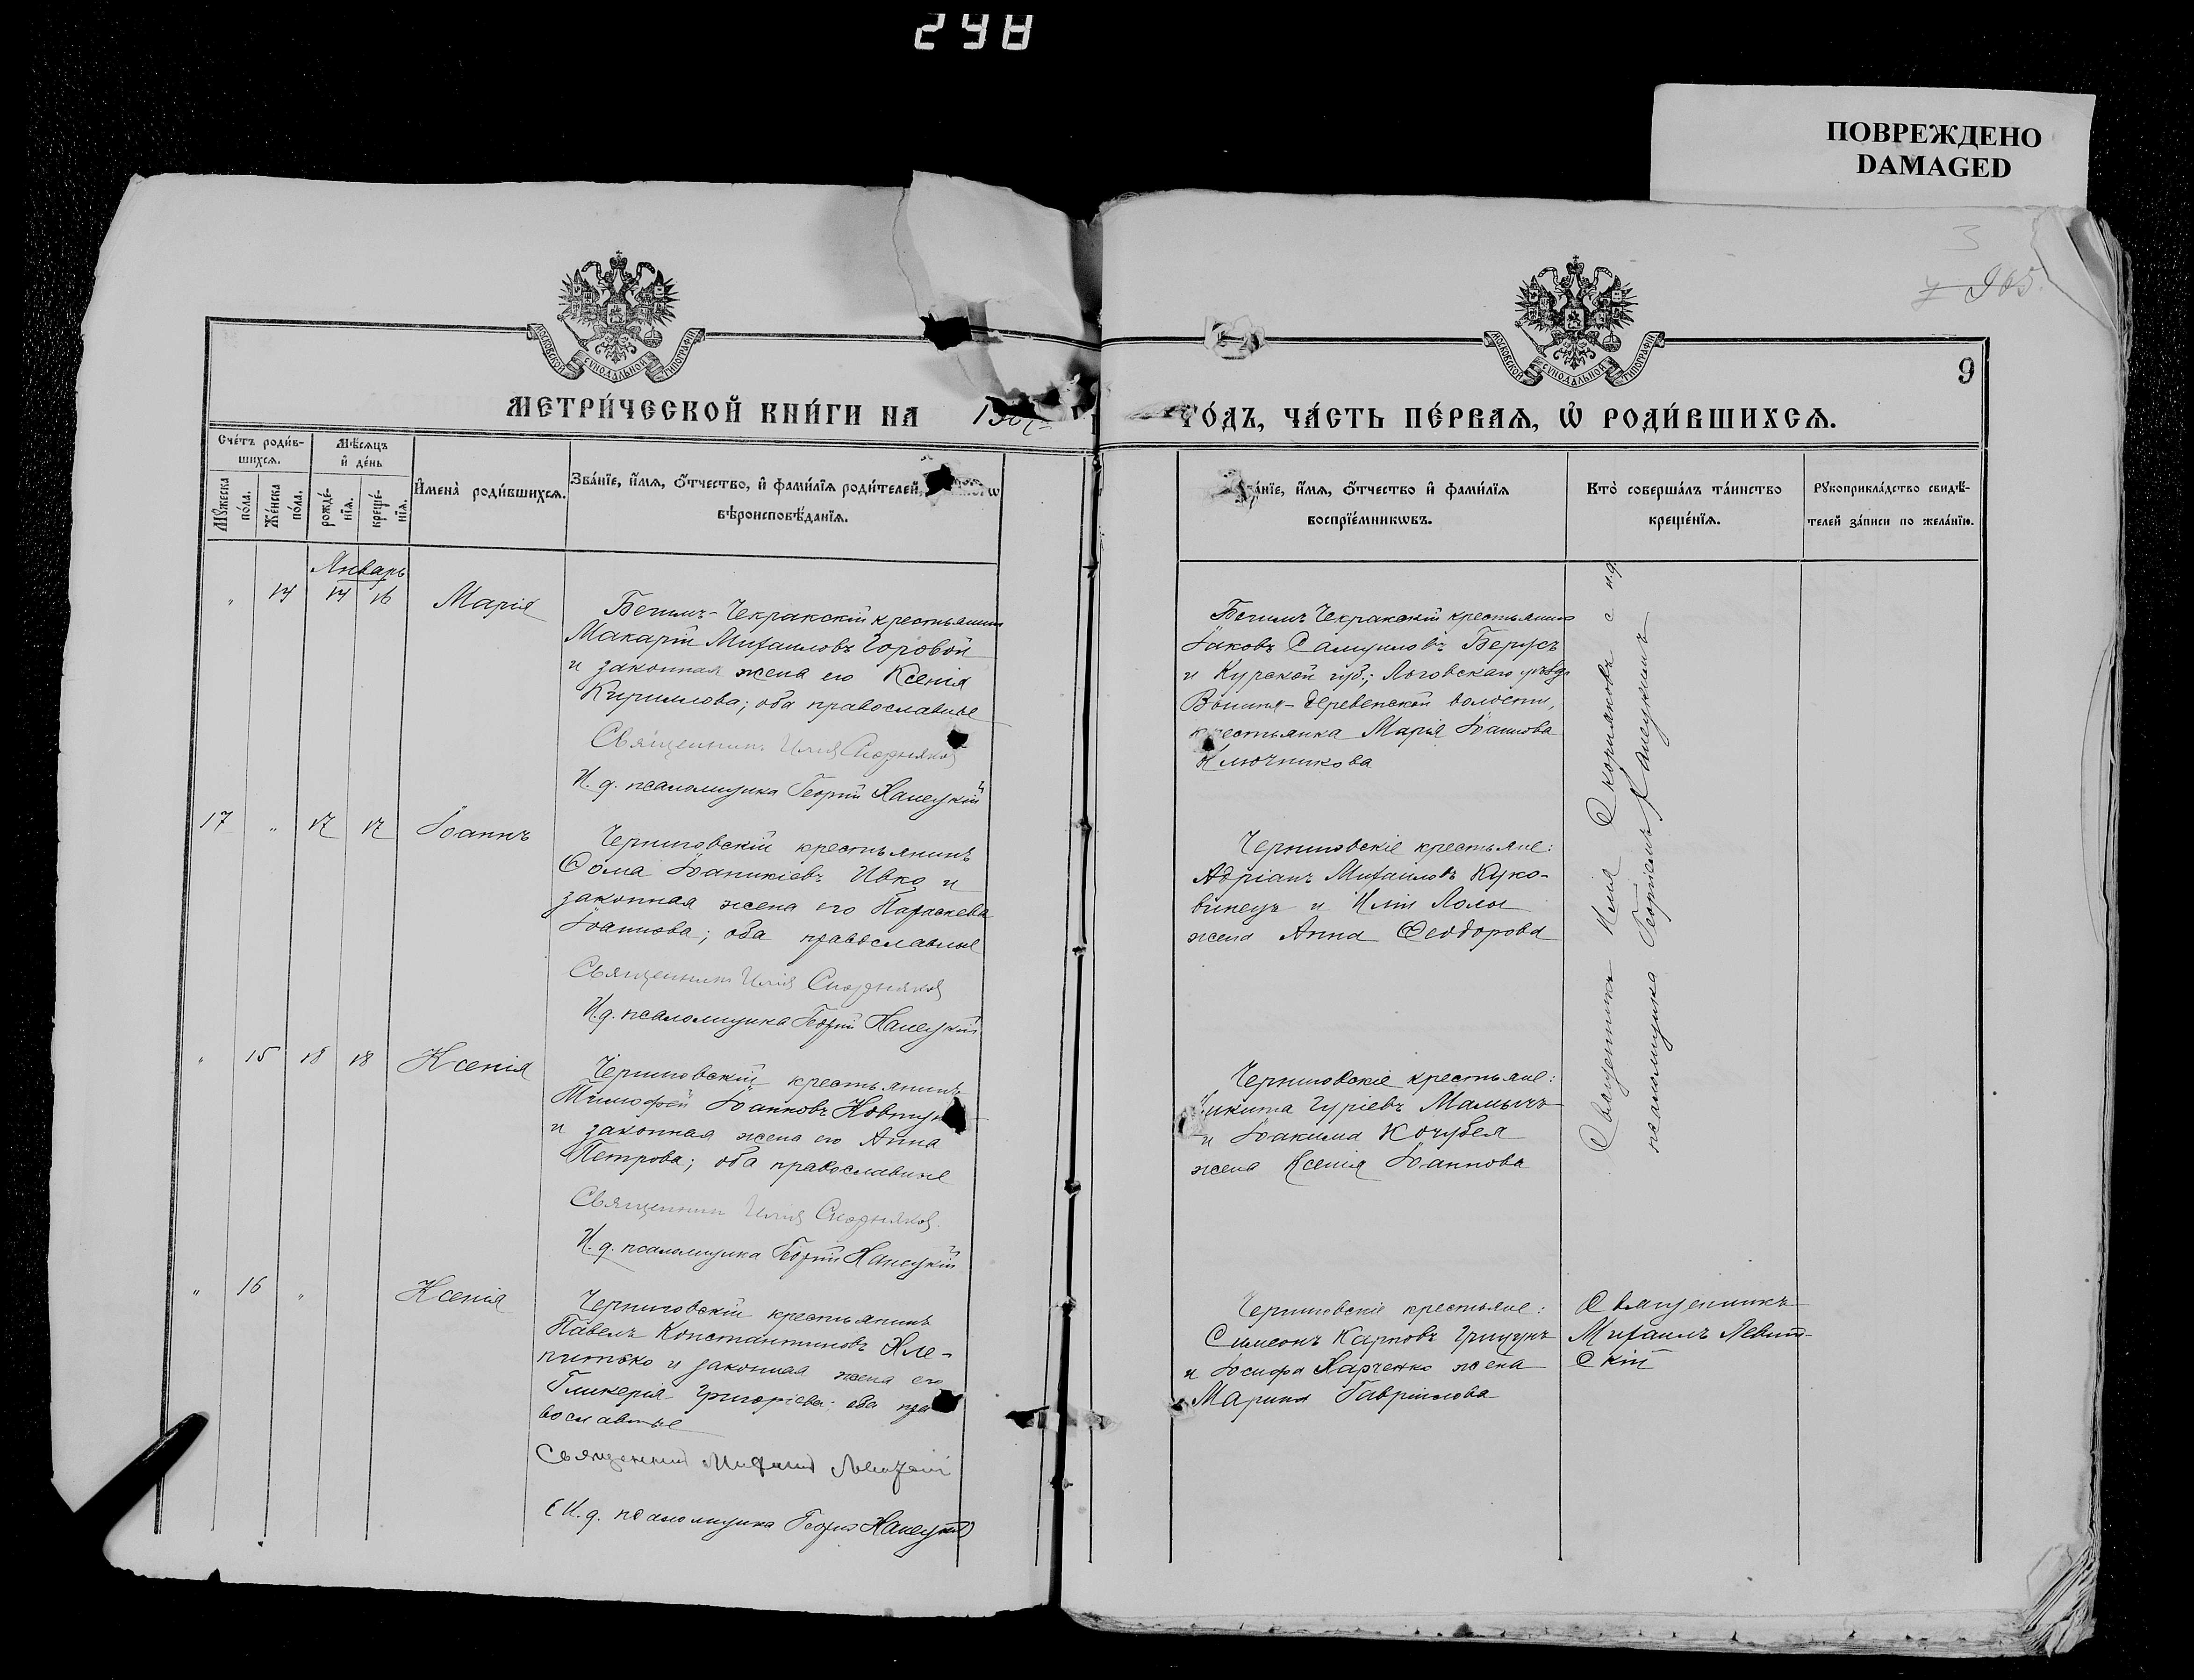 298
ПОВРЕЖДЕНО
DAMAGED
3
905
МОСКОВСКОЙ СѴНОДАЛЬНОЙ ТИПОГРАФІИ
МОСКОВСКОЙ СѴНОДАЛЬНОЙ ТИПОГРАФІИ
9
МЕТРИ́ЧЕСКОЙ КНИ́ГИ НА
ГО́ДЪ, ЧА́СТЬ ПЕ́РВАѦ, Ѡ҆ РОДИ́ВШИХСѦ.
Сче́тъ роди́в-
шихсѧ.
Мѣ́сѧцъ
и҆ де́нь
Мꙋ́жеска
по́ла.
Же́нска
по́ла.
рожде́-
нїѧ.
креще́-
нїѧ.
И҆мена̀ роди́вшихсѧ.
Зва́нїе, и҆́мѧ, ѻ҆́тчество, и҆ фами́лїѧ роди́телей,
вѣроисповѣ́данїѧ.
Зва́нїе, и҆́мѧ, ѻ҆́тчество и҆ фами́лїѧ
воспрїе́мникѡвъ.
Кто̀ соверша́лъ та́инство
креще́нїѧ.
Рꙋкоприкла́дство свидѣ́-
телей за́писи по жела́нїю.
Январь
" 14 14 16 Марія
Бегимъ-Чекракскій крестьянинъ
Макарій Михаиловъ Горовой
и законная жена его Ксенія
Кириллова; оба православные
Священникъ Илія Скорняковъ
И. д. псаломщика Георгій Канецкій
Бегимъ Чекракскій крестьянинъ
Іаковъ Самуиловъ Берусъ
и Курской губ.; Логовскаго уѣзда
деревенской волости,
крестьянка Марія Іоаннова
Ключникова
Священникъ Илія Скорняковъ с и.д.
псаломщика Георгіемъ Канецкимъ
17 " 17 17 Іоаннъ
Черниговскій крестьянинъ
Ѳома Іоаникіевъ Ивко и
законная жена его Параскева
Іоаннова; оба православные
Священникъ Илія Скорняковъ
И.д. псаломщика Георгій Канецкій
Черниговскіе крестьяне:
Адріанъ Михаиловъ Куко-
винецъ и Иліи Лолы
жена Анна Ѳеодорова
" 15 18 18 Ксенія
Черниговскій крестьянинъ
Тимофей Іоанновъ Ковтун
и законная жена его Анна
Петрова; оба православные
Священникъ Илія Скорняковъ.
И. д. псаломщика Георгій Канецкій
Черниговскіе крестьяне:
Никита Гуріевъ Мамычъ
и Іоакима Кочубея
жена Ксенія Іоаннова
" 16 " Ксенія
Черниговскій крестьянинъ
Павелъ Константиновъ Кле-
питько и законная жена его
Гликерія Григоріева; оба пра
вославные
Священникъ Михаилъ Левитскій
И. д. псаломщика Георгій Канецкій
Черниговскіе крестьяне:
Симеонъ Карповъ Грицунъ
и Іосифа Харченко жена
Марина Гавріилова
Священникъ
Михаилъ Левит-
скій